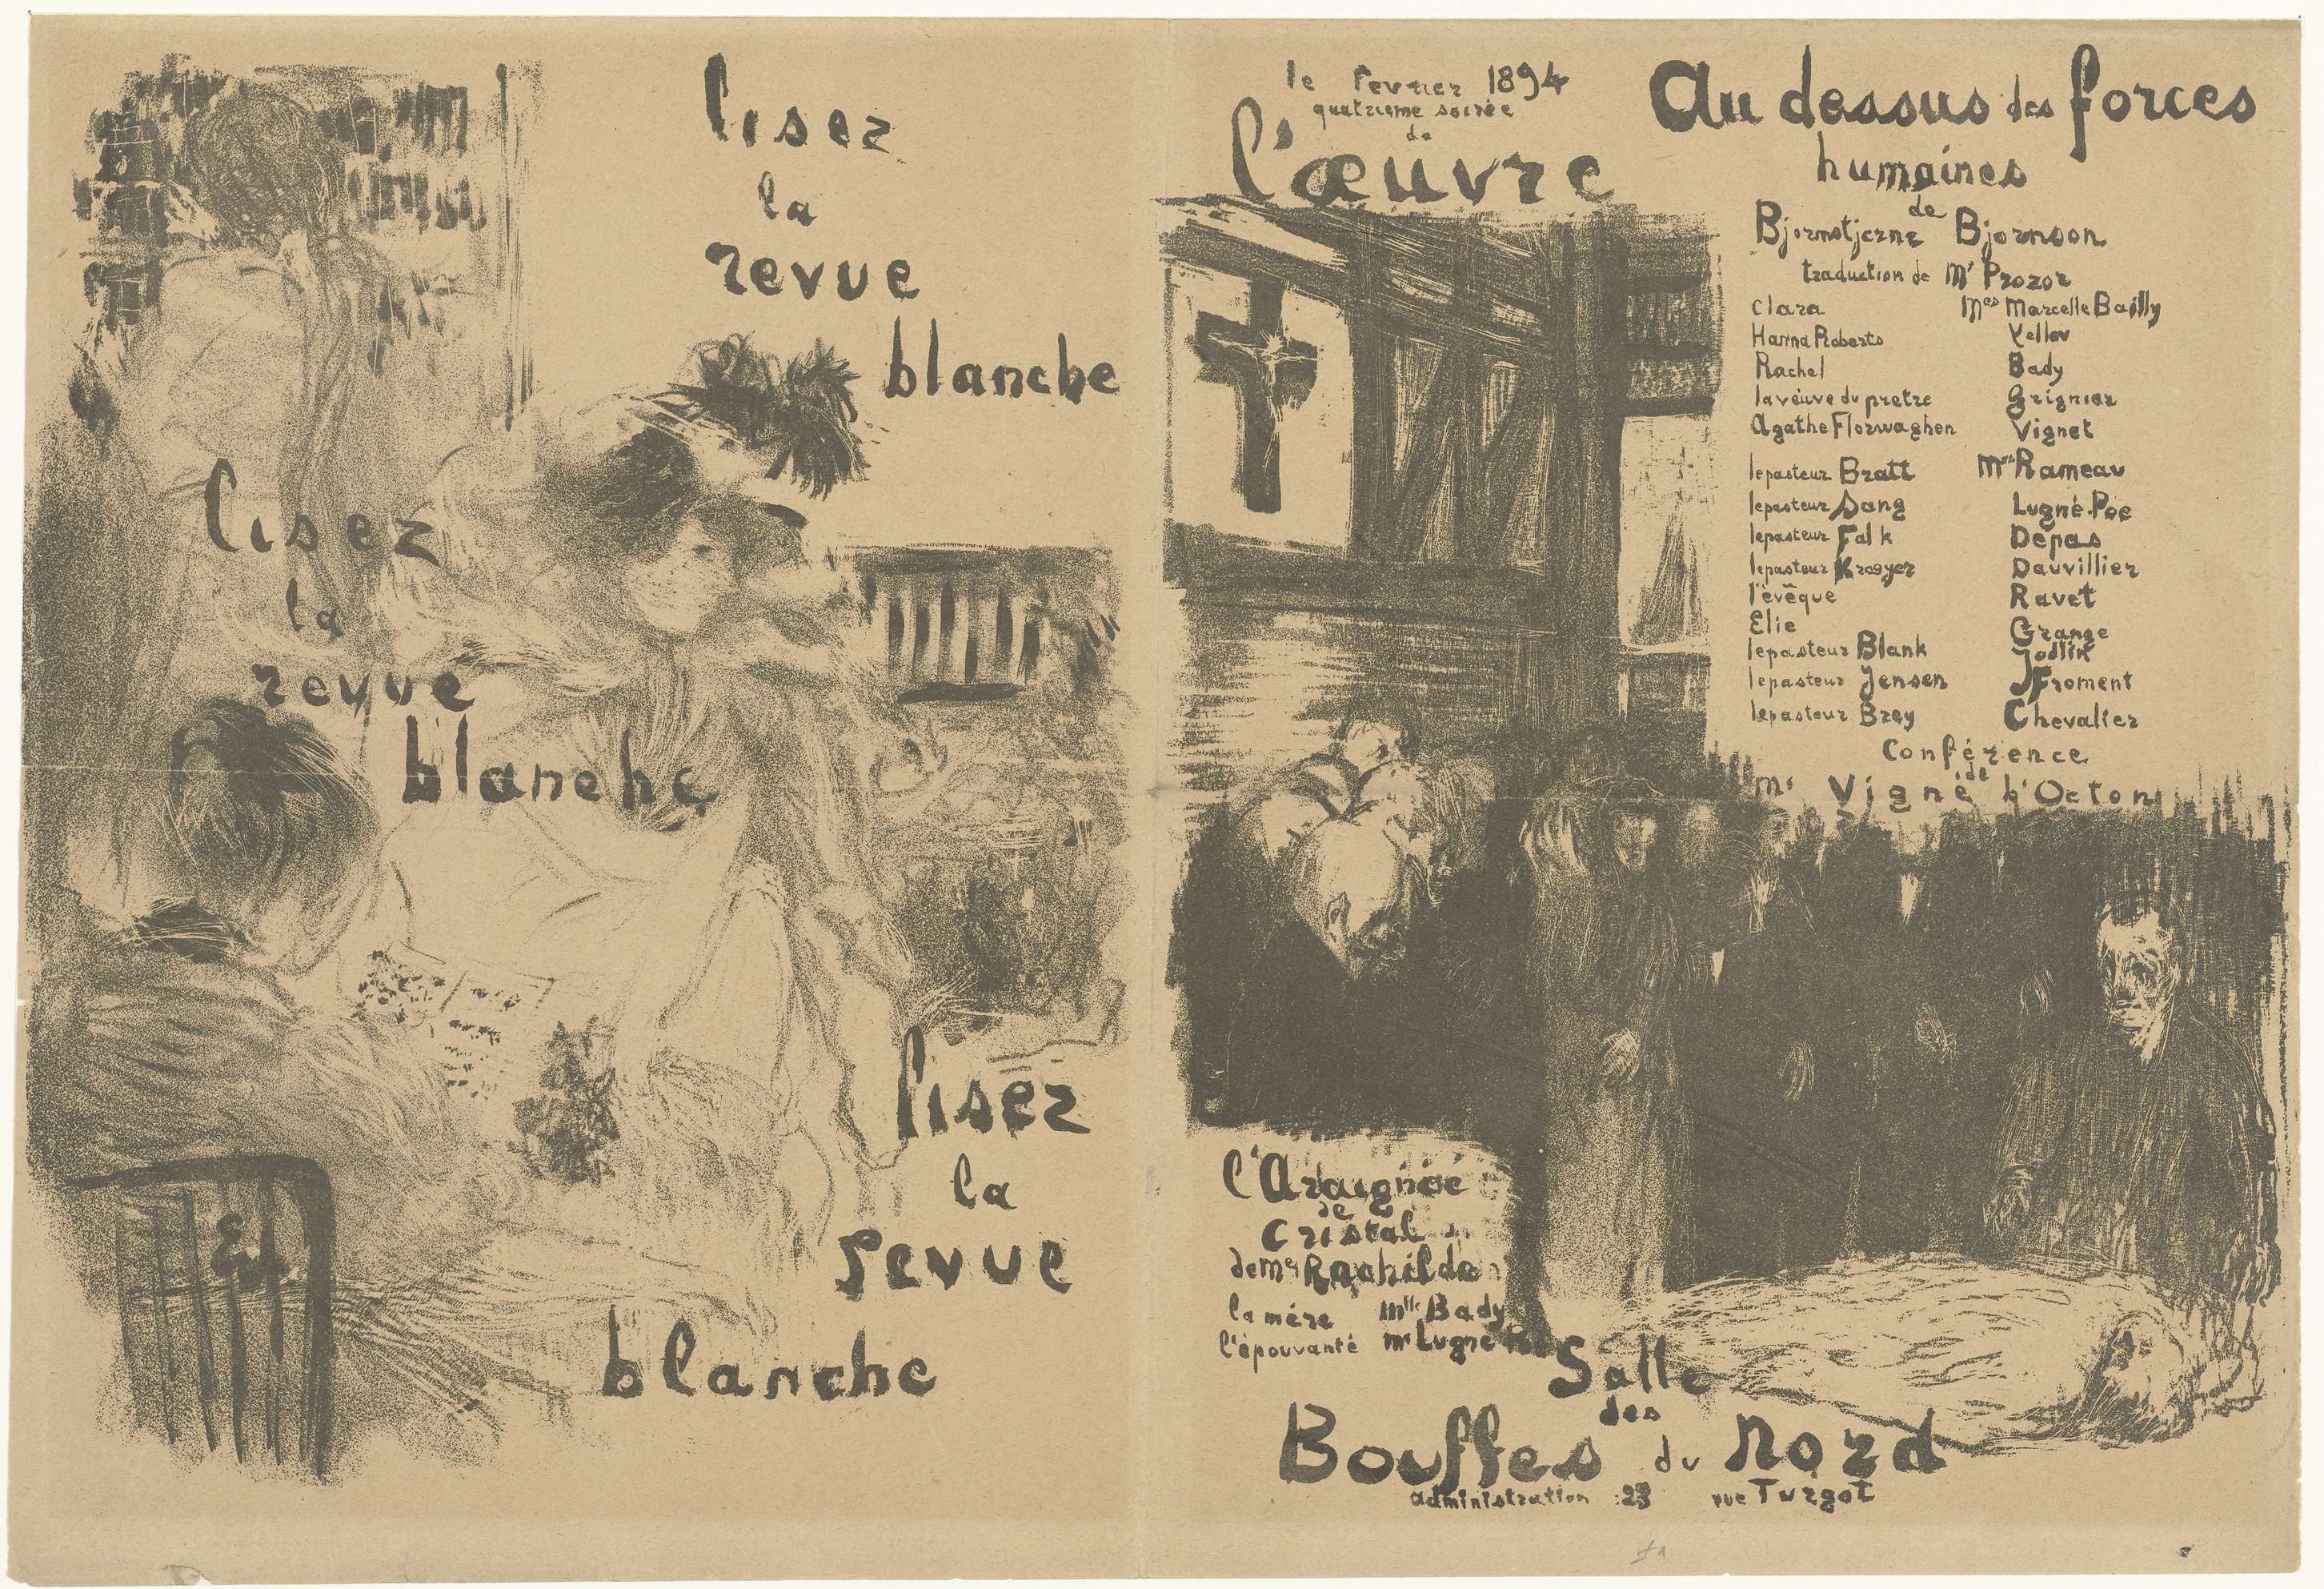 lisez
la
revue
blanche
lisez
la
revue
blanche
lisez
la
revue
blanche
le fevrier 1894
quatrieme soirée
de
l'œuvre
Au dessus des forces
humaines
de
Bjornstjerne Bjornson
traduction de Mr Prozor
clara Mes Marcelle Bailly
Hanna Roberts Yellov
Rachel Bady
la veuve du pretre Grignier
Agathe Florwaghen Vignet
le pasteur Bratt Mrs Rameau
le pasteur Sang Lugné-Poe
le pasteur Falk Depas
le pasteur Kroeyer Dauvillier
l'évêque Ravet
Elie Grange
le pasteur Blank Jodlix
le pasteur Jensen Froment
le pasteur Brey Chevalier
Conférence
de
Mr Vigné d'Octon
l'Araignée
de
Cristal
de me Rachilde
la mére Mlle Bady
l'épouvanté mr Lugné Poe
Salle
des
Bouffes du Nord
administration 23 rue Turgot